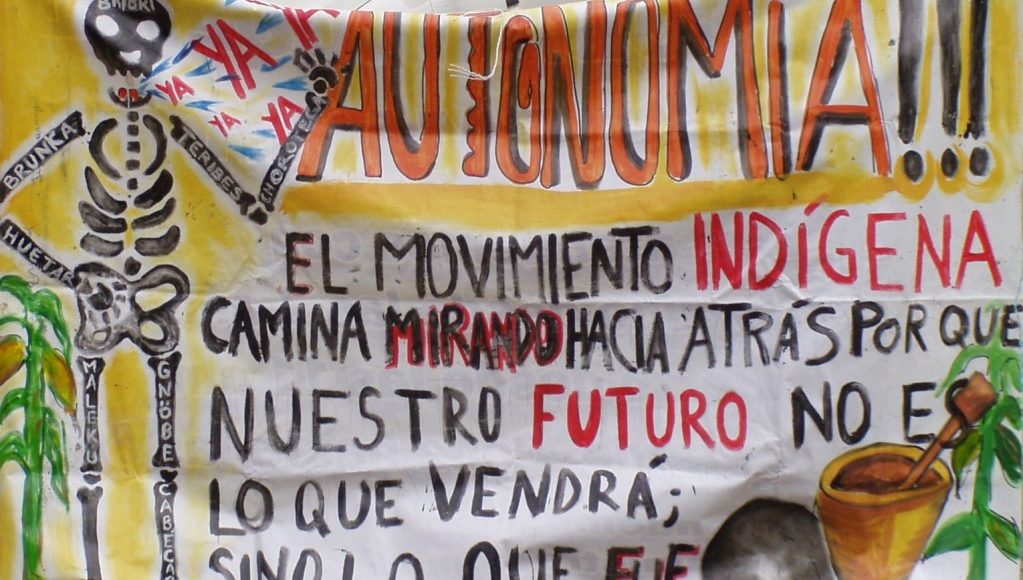 BRIBRI
YA
YA
YA
YA
YA
BRUNKA
TERIBES
CHOROTEGA
HUETAR
MALEKU
GNÖBE
CABECAR
AUTONOMIA!!!
EL MOVIMIENTO INDÍGENA
CAMINA MIRANDO HACIA ATRÁS POR QUE
NUESTRO FUTURO NO ES
LO QUE VENDRÁ;
SINO LO QUE FUE